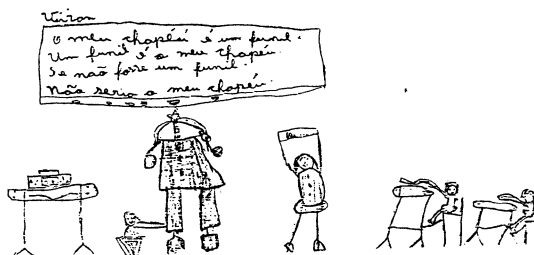 O meu chapéu é um funil.
Um funil é o meu chapéu.
Se não fosse um funil.
Não seria o meu chapéu.